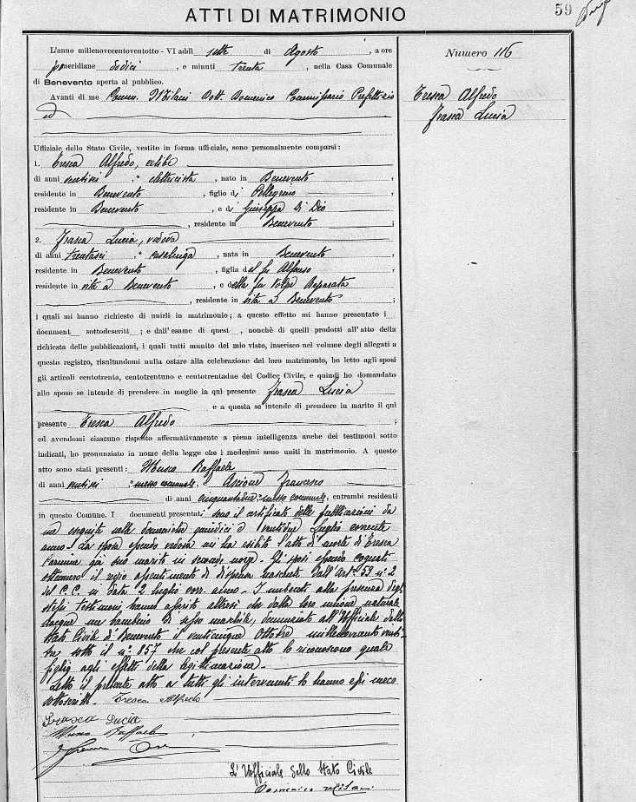 59
ATTI DI MATRIMONIO
Numero 116
Tresca Alfredo
Frasca Lucia
L'anno millenovecentoventotto - VI addì sette di Agosto, a ore
pomeridiane dodici, e minuti trenta, nella Casa Comunale
di Benevento aperta al pubblico.
Avanti di me Comm. Milani Dott. Domenico Commissario Prefettizio
ed
Uffiziale dello Stato Civile, vestito in forma ufficiale, sono personalmente comparsi:
1. Tresca Alfredo, celibe
di anni, elettricista, nato in Benevento,
residente in Benevento, figlio di Pellegrino
residente in Benevento, e di Giuseppa Di Dio
, residente in Benevento;
2. Frasca Lucia, vedova
di anni trentasei, casalinga, nata in Benevento
residente in Benevento, figlia del fu Alfonso
residente in vita a Benevento, e della fu Volpe Reparata
, residente in vita a Benevento;
i quali mi hanno richiesto di unirli in matrimonio; a questo effetto mi hanno presentato i
document sottodescritti; e dall'esame di quest, nonchè di quelli prodotti all'atto della
richiesta delle pubblicazioni, i quali tutti muniti del mio visto, inserisco nel volume degli allegati a
questo registro, risultandomi nulla ostare alla celebrazione del loro matrimonio, ho letto agli sposi
gli articoli centotrenta, centotrentuno e centotrentadue del Codice Civile, e quindi ho domandato
allo sposo se intende di prendere in moglie la qui presente Frasca Lucia
e a questa se intende di prendere in marito il qui
presente Tresca Alfredo
ed avendomi ciascuno risposto affermativamente a piena intelligenza anche dei testimoni sotto
indicati, ho pronunziato in nome della legge che i medesimi sono uniti in matrimonio. A questo
atto sono stati presenti: Musco Raffaele
di anni, messo comunale e Francesco
di anni cinquantadue, messo comunale, entrambi residenti
in questo Comune. I documenti presentati sono il certificato delle pubblicazioni da
me eseguite nelle domeniche quindici e ventidue Luglio corrente
anno. La sposa essendo vedova mi ha esibito l'atto di morte di Tresca
Carmine già suo marito in seconde nozze. Gli sposi essendo cognati
ottennero il regio assentimento di dispensa nascente dall'art. 59 n. 2
del C. C. in data 2 luglio corr. anno. I suddetti alla presenza degli
stessi testimoni hanno asserito altresì che dalla loro unione naturale
nacque un bambino di sesso maschile, denunciato all'Ufficiale dello
Stato Civile di Benevento il venticinque Ottobre millenovecentoventi
tre sotto il n. 857 che col presente atto lo riconoscono quale
figlio agli effetti della legittimazione.
Letto il presente atto a tutti gli intervenuti lo hanno essi meco
sottoscritto. Tresca Alfredo
Frasca Lucia
Musco Raffaele
L'Ufficiale dello Stato Civile
Domenico Milani